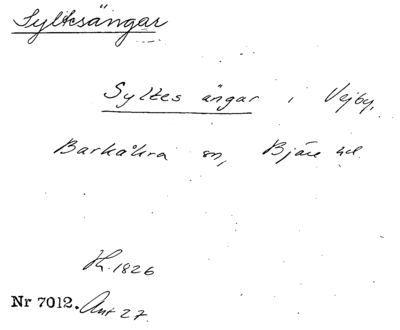 Syltesängar
Syltes ängar i Vejby,
Barkåkra sn, Bjäre hd.
Ht. 1826
Nr 7012. Ant 27.